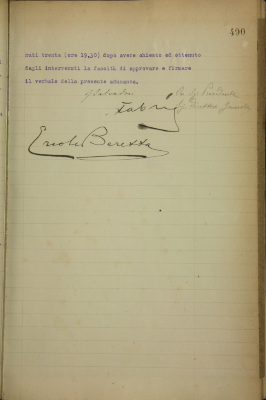 490
nuti trenta (ore 19,30) dopo avere chiesto ed ottenuto
dagli intervenuti la facoltà di approvare e firmare
il verbale della presente adunanza.
Salvadori
Fabri
Ercole Beretta